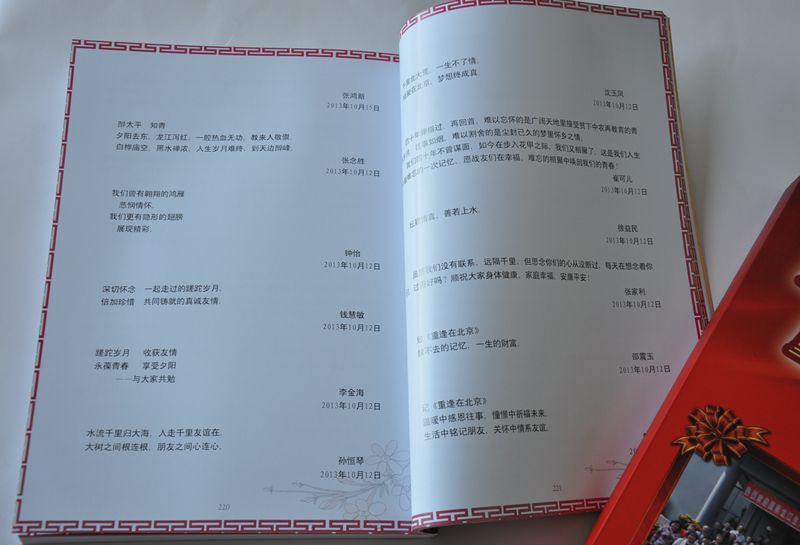 张鸿新
2013年10月15日
邵太平 知青
夕阳去东，龙江泻红，一腔热血无功，教来人敬崇。
白桦庙空，黑水禅浓，人生岁月难终，到天边醉峰。
张念胜
2013年10月12日
我们曾有翱翔的鸿雁
悲悯情怀，
我们更有隐形的翅膀
展现精彩。
钟怡
2013年10月12日
深切怀念 一起走过的蹉跎岁月，
倍加珍惜 共同铸就的真诚友情。
钱慧敏
2013年10月12日
蹉跎岁月 收获友情
永葆青春 享受夕阳
——与大家共勉
李金海
2013年10月12日
水流千里归大海，人走千里友谊在。
大树之间根连根，朋友之间心连心。
孙恒琴
2013年10月12日
220
北大荒，一生不了情，
在北京，梦想终成真。
沈玉凤
2013年10月12日
十年弹指过，再回首，难以忘怀的是广阔天地里接受贫下中农再教育的青
往事如烟，难以割舍的是尘封已久的梦里怀乡之情。
我们四十年不曾谋面，如今在步入花甲之际，我们又相聚了，这是我们人生
难忘的一次记忆，愿战友们在幸福、难忘的相聚中唤回我们的青春！
崔可儿
2013年10月12日
真，善若上水。
徐益民
2013年10月12日
虽然我们没有联系，远隔千里，但思念你们的心从没断过，每天在想念着你
过得好吗？顺祝大家身体健康，家庭幸福，安康平安！
张家利
2013年10月12日
《重逢在北京》
不去的记忆，一生的财富。
邵震玉
2013年10月12日
记《重逢在北京》
温暖中感恩往事，憧憬中祈福未来，
生活中铭记朋友，关怀中情系友谊。
221